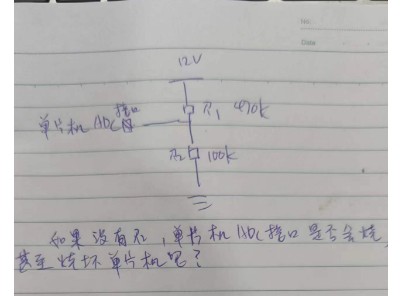 No.
Date
12V
单片机 ADC接口
R1 470k
R2 100k
如果没有R2，单片机ADC接口是否会烧，
甚至烧坏单片机呢？